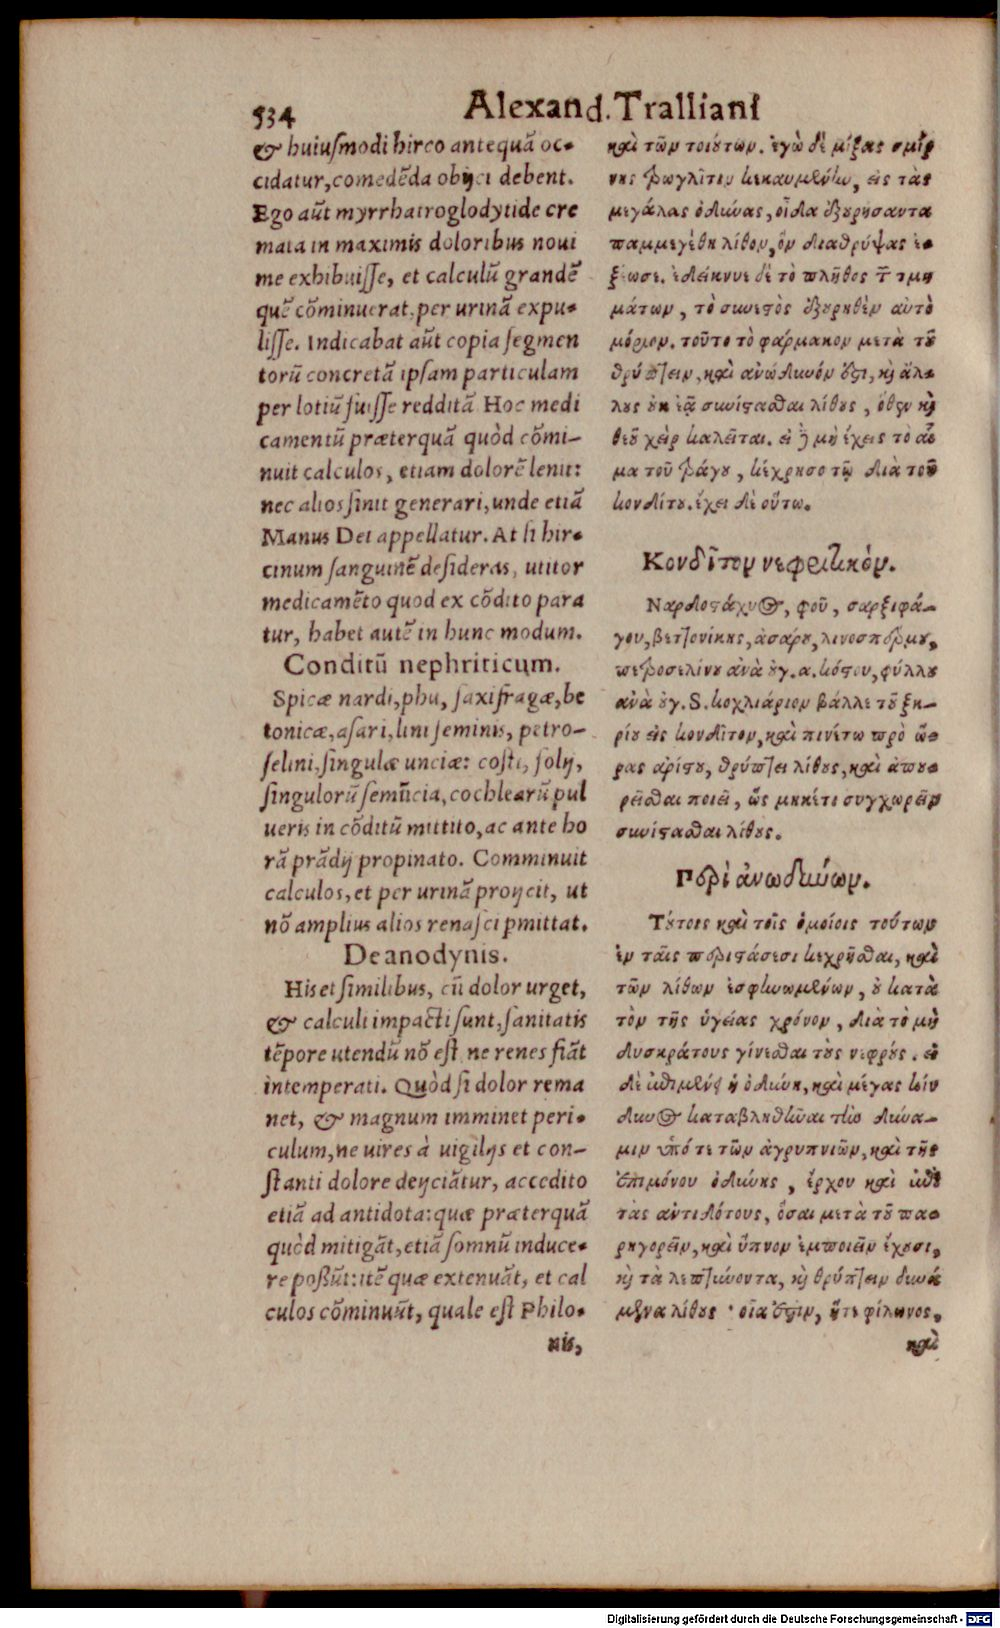 534 Alexand. Tralliani
& huiusmodi hirco antequã oc-
cidatur, comedēda obijci debent.
Ego aūt myrrha troglodytide cre
mata in maximis doloribus noui
me exhibuisse, et calculū grandē
quē cōminuerat, per urinā expu-
lisse. Indicabat aūt copia segmen
torū concretā ipsam particulam
per lotiū fuisse redditā Hoc medi
camentū præterquā quòd cōmi-
nuit calculos, etiam dolorē lenit:
nec alios sinit generari, unde etiā
Manus Dei appellatur. At si hir-
cinum sanguinē desideras, utitor
medicamēto quod ex cōdito para
tur, habet autē in hunc modum.
Conditū nephriticum.
Spicæ nardi, phu, saxifragæ, be
tonicæ, asari, lini seminis, petro-
selini, singulæ unciæ: costi, folij,
singulorū semūcia, cochlearū pul
ueris in cōditū mittito, ac ante ho
rā prādij propinato. Comminuit
calculos, et per urinā proijcit, ut
nō amplius alios renasci pmittat.
De anodynis.
His et similibus, cū dolor urget,
& calculi impacti sunt, sanitatis
tēpore utendū nō est, ne renes fiāt
intemperati. Quòd si dolor rema
net, & magnum imminet peri-
culum, ne uires à uigilijs et con-
stanti dolore deijciātur, accedito
etiā ad antidota: quæ præterquā
quòd mitigāt, etiā somnū induce-
re possūt: itē quæ extenuāt, et cal
culos cōminuūt, quale est Philo-
nis,
καὶ τῶν τοιούτων. ἐγὼ δὲ μίξας σμύρ
νης τρωγλῖτιν κεκαυμένην, εἰς τὰς
μεγάλας ὀδύνας, οἶδα ἐξουρήσαντα
παμμεγέθη λίθον, ὃν διαθρύψας ἐ-
ξέωσε. ἐδείκνυε δὲ τὸ πλῆθος τ̃ τμη
μάτων, τὸ συνεστὸς ἐξουρηθὲν αὐτὸ
μόριον. τοῦτο τὸ φάρμακον μετὰ τοῦ
θρύπτειν, καὶ ἀνώδυνόν ἐστι, κὴ ἄλ-
λους οὐκ ἐᾷ συνίστασθαι λίθους, ὅθεν κὴ
θεοῦ χεὶρ καλεῖται. εἰ δὲ μὴ ἔχεις τὸ αἷ
μα τοῦ τράγου, κέχρησο τῷ διὰ τοῦ
κονδίτου. ἔχει δὲ οὕτω.
Κονδῖτον νεφριτικόν.
Ναρδοστάχυος, φοῦ, σαρξιφά-
γου, βεττονίκης, ἀσάρου, λινοσπέρμου,
πετροσελίνου ἀνὰ οὐγ. α. κόστου, φύλλου
ἀνὰ οὐγ. S. κοχλιάριον βάλλε τοῦ ξη-
ρίου εἰς κονδῖτον, καὶ πινέτω πρὸ ὥ-
ρας ἀρίστου, θρύπτει λίθους, καὶ ἀπου-
ρεῖσθαι ποιεῖ, ὡς μηκέτι συγχωρεῖν
συνίστασθαι λίθους.
Περὶ ἀνωδύνων.
Τούτοις καὶ τοῖς ὁμοίοις τούτων
ἐν ταῖς περιστάσεσι κεχρῆσθαι, καὶ
τῶν λίθων ἐσφηνωμένων, οὐ κατὰ
τὸν τῆς ὑγείας χρόνον, διὰ τὸ μὴ
δυσκράτους γίνεσθαι τοὺς νεφρούς. εἰ
δὲ ἐπιμένει ἡ ὀδύνη, καὶ μέγας κίν
δυνος καταβληθῆναι τὴν δύνα-
μιν ὑπό τε τῶν ἀγρυπνιῶν, καὶ τῆς
ἐπιμόνου ὀδύνης, ἔρχου καὶ ἐπὶ
τὰς ἀντιδότους, ὅσαι μετὰ τοῦ πα-
ρηγορεῖν, καὶ ὕπνον ἐμποιεῖν ἔχουσι,
κὴ τὰ λεπτύνοντα, κὴ θρύπτειν δυνά
μενα λίθους· οἷα ἐστιν, ἥτε φίλωνος,
καὶ
Digitalisierung gefördert durch die Deutsche Forschungsgemeinschaft - DFG